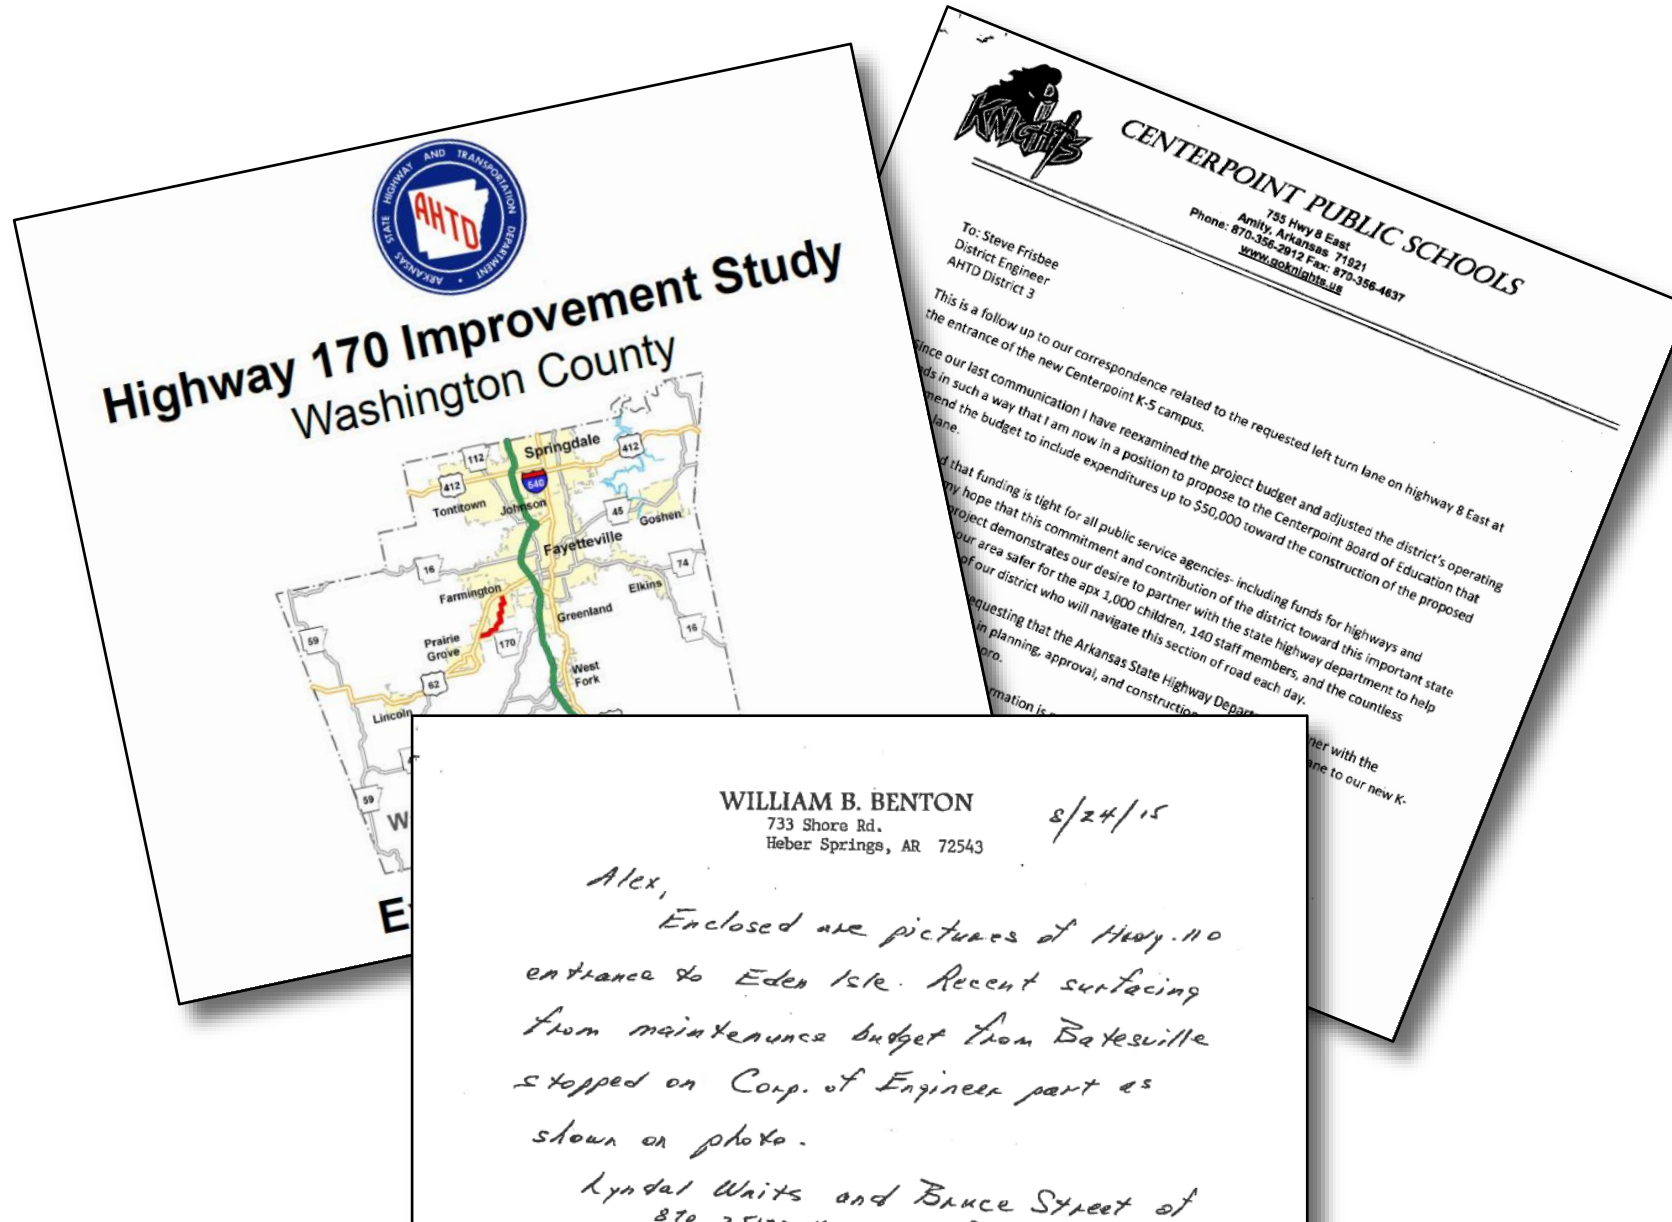 ARKANSAS STATE HIGHWAY AND TRANSPORTATION DEPARTMENT
AHTD
Highway 170 Improvement Study
Washington County
Springdale
112
412
412
540
Tontitown
Johnson
45
Goshen
Fayetteville
16
74
Farmington
Elkins
Greenland
59
Prairie
Grove
170
16
62
West
Fork
Lincoln
59
W
E
KNIGHTS
CENTERPOINT PUBLIC SCHOOLS
755 Hwy 8 East
Amity, Arkansas 71921
Phone: 870-356-2912 Fax: 870-356-4637
www.goknights.us
To: Steve Frisbee
District Engineer
AHTD District 3
This is a follow up to our correspondence related to the requested left turn lane on highway 8 East at
the entrance of the new Centerpoint K-5 campus.
Since our last communication I have reexamined the project budget and adjusted the district's operating
ds in such a way that I am now in a position to propose to the Centerpoint Board of Education that
mend the budget to include expenditures up to $50,000 toward the construction of the proposed
lane.
d that funding is tight for all public service agencies- including funds for highways and
my hope that this commitment and contribution of the district toward this important state
project demonstrates our desire to partner with the state highway department to help
our area safer for the apx 1,000 children, 140 staff members, and the countless
of our district who will navigate this section of road each day.
equesting that the Arkansas State Highway Depart
ner with the
in planning, approval, and construction
ane to our new K-
oro.
rmation is
WILLIAM B. BENTON
733 Shore Rd.
Heber Springs, AR 72543
8/24/15
Alex,
Enclosed are pictures of Hwy. 110
entrance to Eden Isle. Recent surfacing
from maintenance budget from Batesville
stopped on Corp. of Engineer part as
shown on photo.
Lyndal Waits and Bruce Street of
870